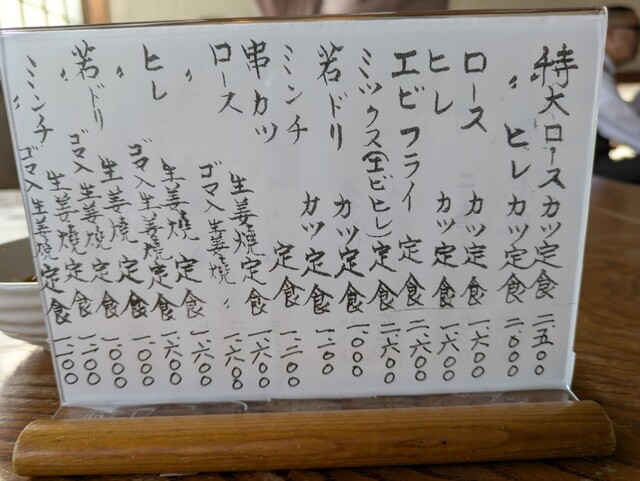 特大ロースカツ定食 二.五〇〇
〃 ヒレカツ定食 二.〇〇〇
ロース カツ定食 一.六〇〇
ヒレ カツ定食 一.六〇〇
エビフライ 定食 二.六〇〇
ミックス(エビヒレ)定食 二.六〇〇
若ドリ カツ定食 一.〇〇〇
ミンチ カツ定食
串カツ 定食 一.二〇〇
ロース 生姜焼定食 一.六〇〇
〃 ゴマ入生姜焼〃 一.六〇〇
ヒレ 生姜焼定食 一.六〇〇
〃 ゴマ入生姜焼定食 一.六〇〇
若ドリ 生姜焼定食 一.〇〇〇
〃 ゴマ入生姜焼定食 一.〇〇〇
ミンチ 生姜焼定食
〃 ゴマ入生姜焼定食